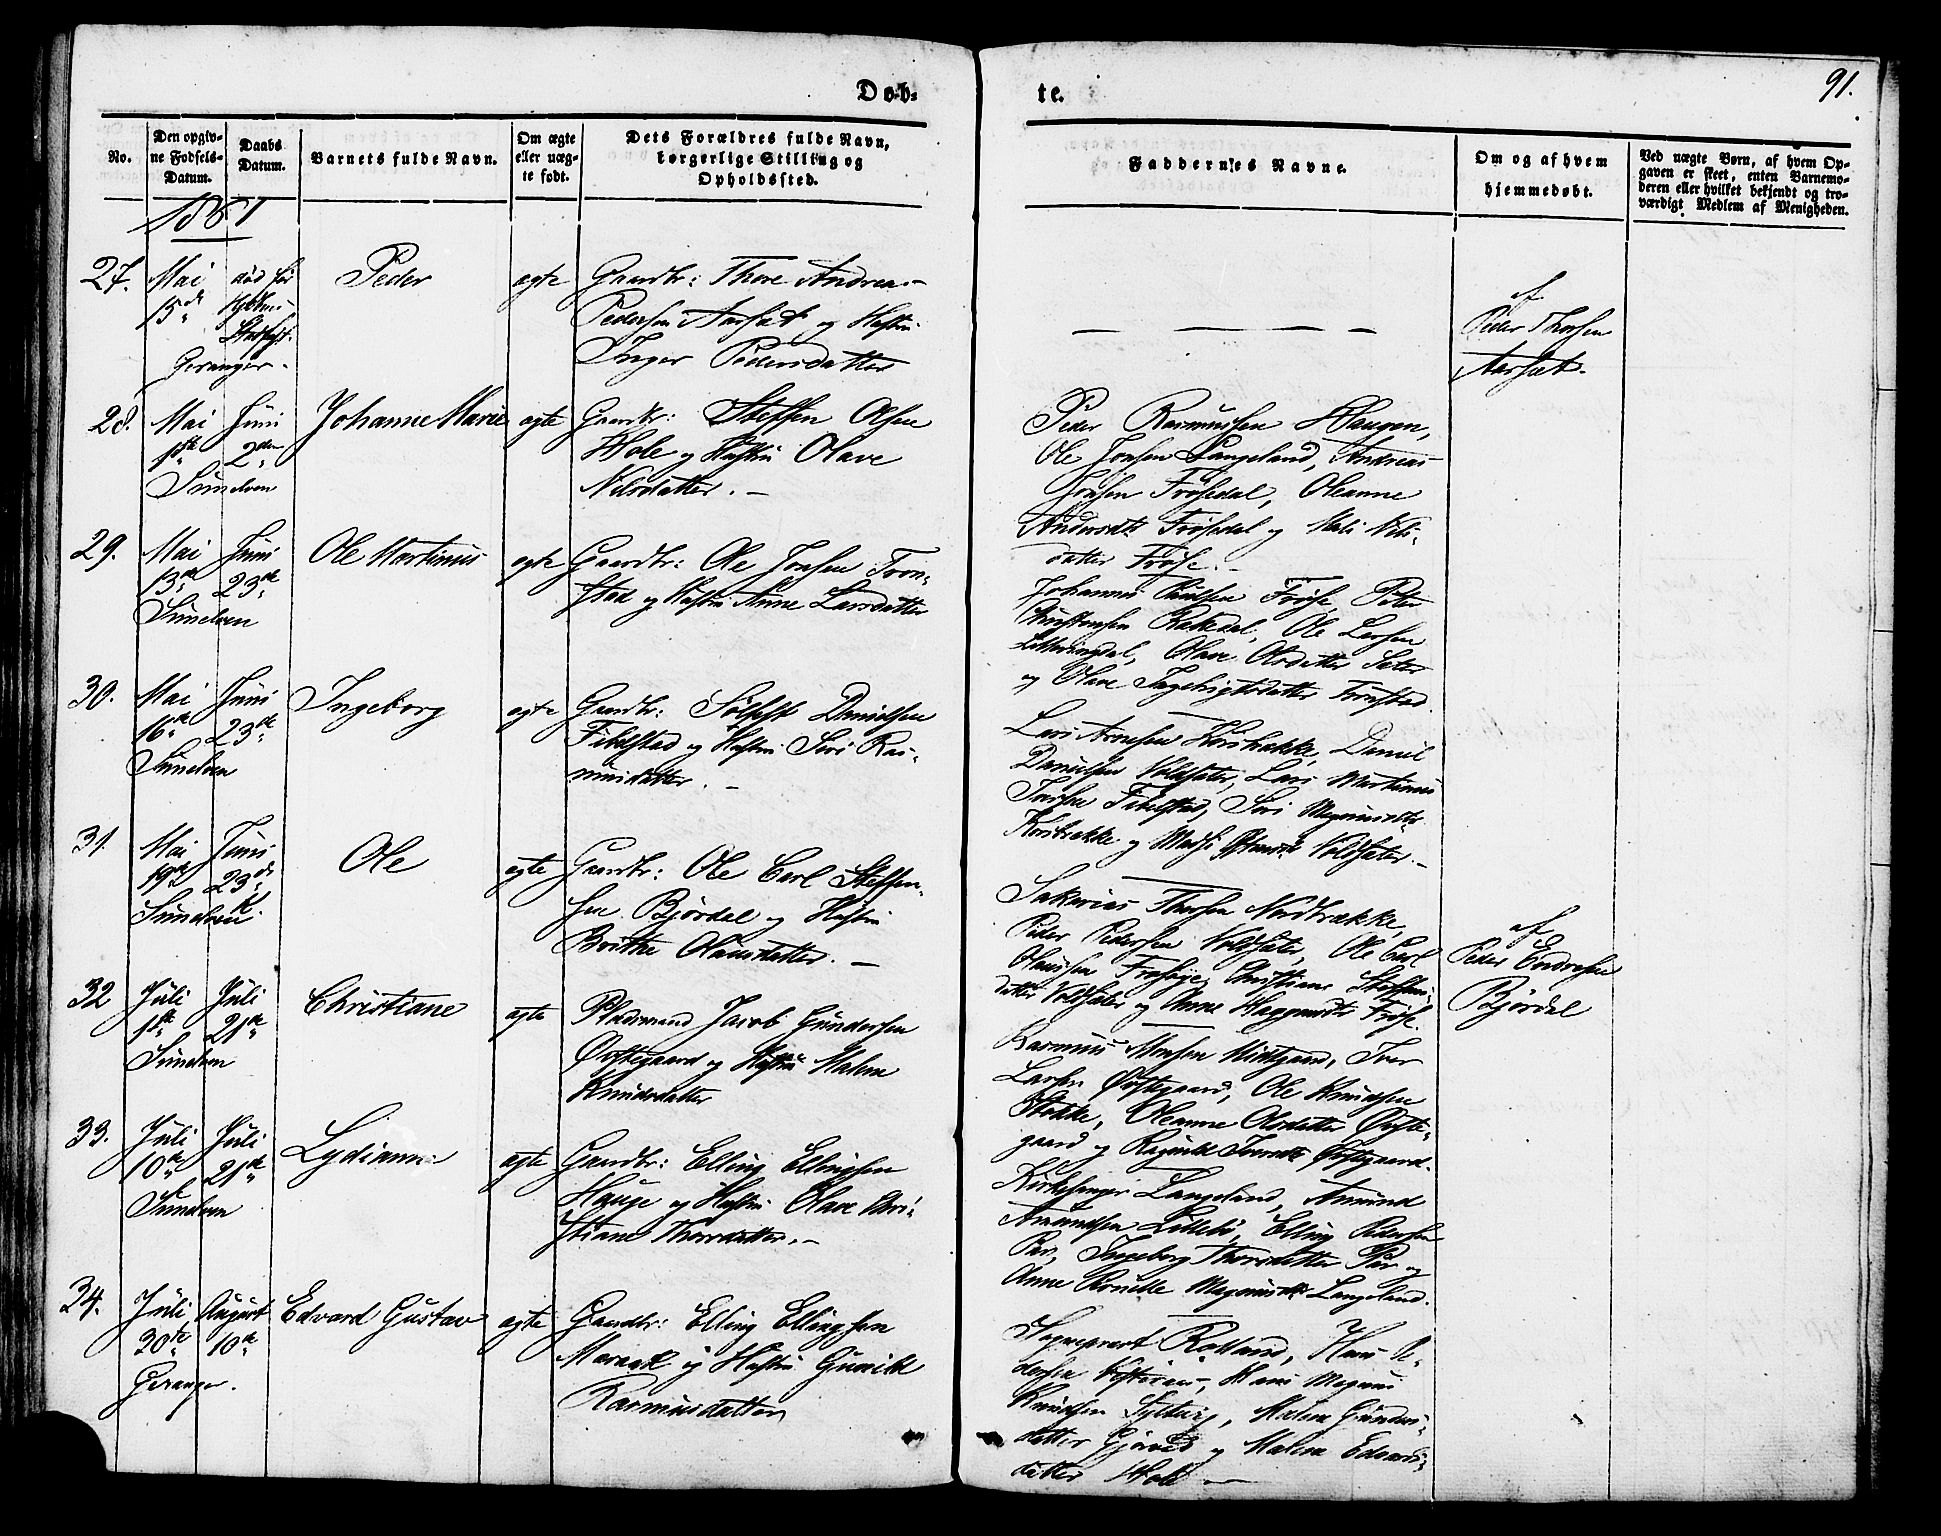 Døb-
te.
91.
No.
Den opgiv-
ne Fødsels-
Datum.
Daabs
Datum.
Barnets fulde Navn.
Om ægte
eller uæg-
te født.
Dets Forældres fulde Navn,
borgerlige Stilling og
Opholdssted.
Faddernes Navne.
Om og af hvem
hjemmedøbt.
Ved uægte Børn, af hvem Op-
gaven er skeet, enten Barnemo-
deren eller hvilket bekjendt og tro-
værdigt Medlem af Menigheden.
1861
27.
Mai
15de
Geranger.
død før
Peder
ægte
Gaardbr: Thore Andreas
Pedersen Aarset og Hustru
Inger Pedersdatter
af
Peder Thorsen
Aarset.
28.
Mai
1ste
Sunelven
Juni
2den
Johanne Marie
ægte
Gaardbr: Steffen Olsen
Hole og Hustru Olave
Nilsdatter.
Peder Rasmussen Haugen,
Ole Jonsen Langeland, Andreas
Jonsen Frøsedal, Oleanne
Andersdtr Frøsedal og Mali Nils-
datter Frøse.
29.
Mai
13de
Sunelven
Juni
23de
Ole Martinus
ægte
Gaardbr: Ole Jonsen Tron-
stad og Hustru Anne Larsdatter
Johannes Paulsen Frøse, Peter
Christensen Rakedal, Ole Larsen
Olave Olsdatter Sæter
og Olave Ingebrigtsdatter Tronstad.
30.
Mai
16de
Sunelven
Juni
23de
Ingeborg
ægte
Gaardbr: Sølfest Danielsen
Fibelstad og Hustru Seri Ras-
musdatter.
Lars Arnesen Korsbrække, Daniel
Danielsen Voldsæter, Lars Martinus
Fibelstad, Seri Magnusdtr
Korsbrække og Voldsæter.
31.
Mai
19de
Sunelven
Juni
23de
Ole
ægte
Gaardbr: Ole Carl Steffen-
sen Bjørdal og Hustru
Brithe Olausdatter.
Sakarias Thorsen Nordbrække,
Peder Pedersen Voldsæter, Ole Carl
Olausen Christiane Steffens-
datter Voldsæter og Anne Frøse.
af
Peder Endresen
Bjørdal
32
Juli
1ste
Sunelven
Juli
21de
Christiane
ægte
Pladsmand Jacob Gundersen
Øvstegaard og Hustru Malene
Knudsdatter
Rasmus Iver
Larsen Øvstegaard, Ole Knudsen
Stokke, Oleanne Olsdatter Øvste-
gaard og Ragnild Iversdtr Øvstegaard.
33.
Juli
10de
Sunelven
Juli
21de
Lydianne
ægte
Gaardbr: Elling Ellingsen
Hauge og Hustru Olave Kri-
stiane Thorsdatter.
Kirkesanger Langeland, Amund
Amundsen Lillebø, Elling Pedersen
Ingeborg Thorsdatter og
Anne Magnusdtr Langeland.
34.
Juli
30te
Geranger.
August
10de
Edvard Gustav
ægte
Gaardbr: Elling Ellingsen
Maraak og Hustru Gunild
Rasmusdatter
Rolland, Hans Pe-
dersen Hans Magnus
Knudsen Malene Gunders-
datter Gjørvad og Malene Edvards-
datter Hole